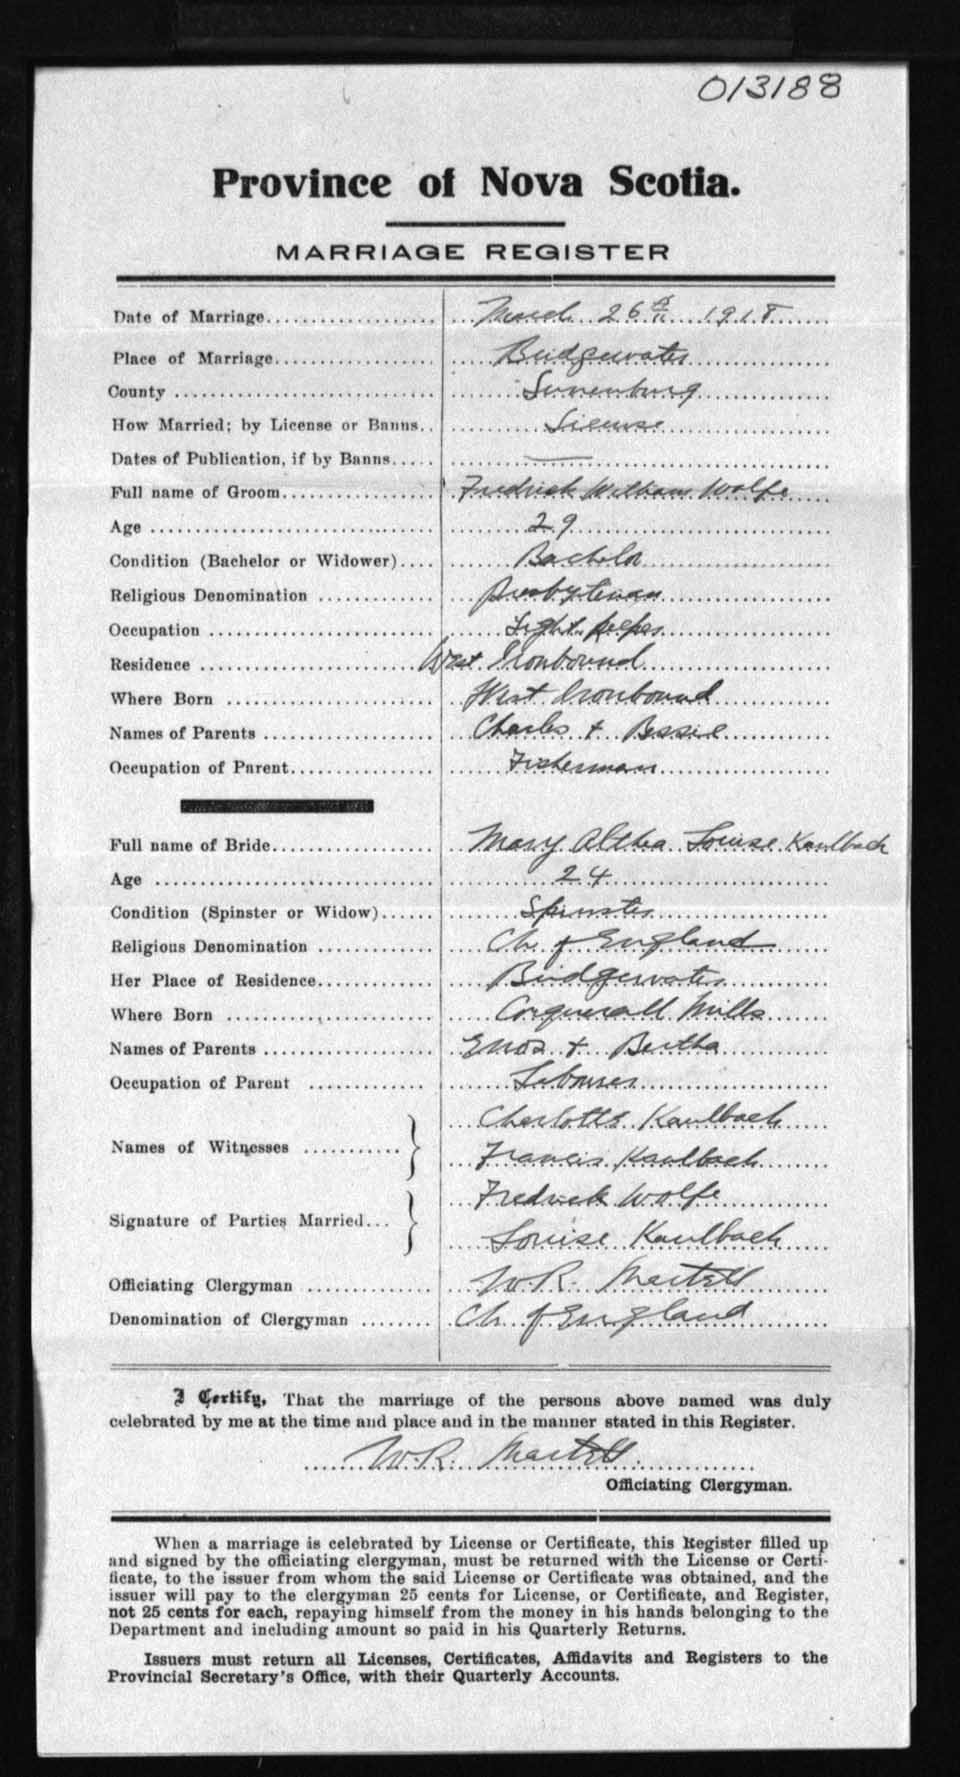 013188
Province of Nova Scotia.
MARRIAGE REGISTER
Date of Marriage.................... March 26th 1918
Place of Marriage................... Bridgewater
County .............................. Lunenburg
How Married; by License or Banns.. License
Dates of Publication, if by Banns..... —
Full name of Groom................. Fredrick William Wolfe
Age ................................. 29
Condition (Bachelor or Widower).... Bachelor
Religious Denomination ............. Presbyterian
Occupation .......................... Light Keeper
Residence ........................... West Ironbound
Where Born ......................... West Ironbound
Names of Parents ................... Charles + Bessie
Occupation of Parent................ Fisherman
Full name of Bride.................. Mary Althea Louise Kaulbach
Age ................................. 24
Condition (Spinster or Widow)...... Spinster
Religious Denomination ............. Ch of England
Her Place of Residence............. Bridgewater
Where Born ......................... Conquerall Mills
Names of Parents ................... Enos + Bertha
Occupation of Parent ............. Labourer
Charlotte Kaulbach
Names of Witnesses ........... }
Francis Kaulbach
Fredrick Wolfe
Signature of Parties Married... }
Louise Kaulbach
Officiating Clergyman .............. W.R. Martell
Denomination of Clergyman ........ Ch of England
I Certify, That the marriage of the persons above named was duly
celebrated by me at the time and place and in the manner stated in this Register.
W.R. Martell
Officiating Clergyman.
When a marriage is celebrated by License or Certificate, this Register filled up
and signed by the officiating clergyman, must be returned with the License or Certi-
ficate, to the issuer from whom the said License or Certificate was obtained, and the
issuer will pay to the clergyman 25 cents for License, or Certificate, and Register,
not 25 cents for each, repaying himself from the money in his hands belonging to the
Department and including amount so paid in his Quarterly Returns.
Issuers must return all Licenses, Certificates, Affidavits and Registers to the
Provincial Secretary's Office, with their Quarterly Accounts.